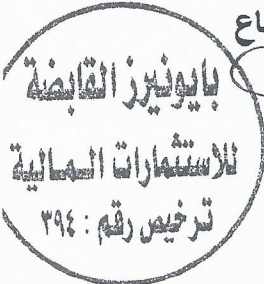 بايونيرز القابضة
للاستثمارات المالية
ترخيص رقم : ٣٩٤